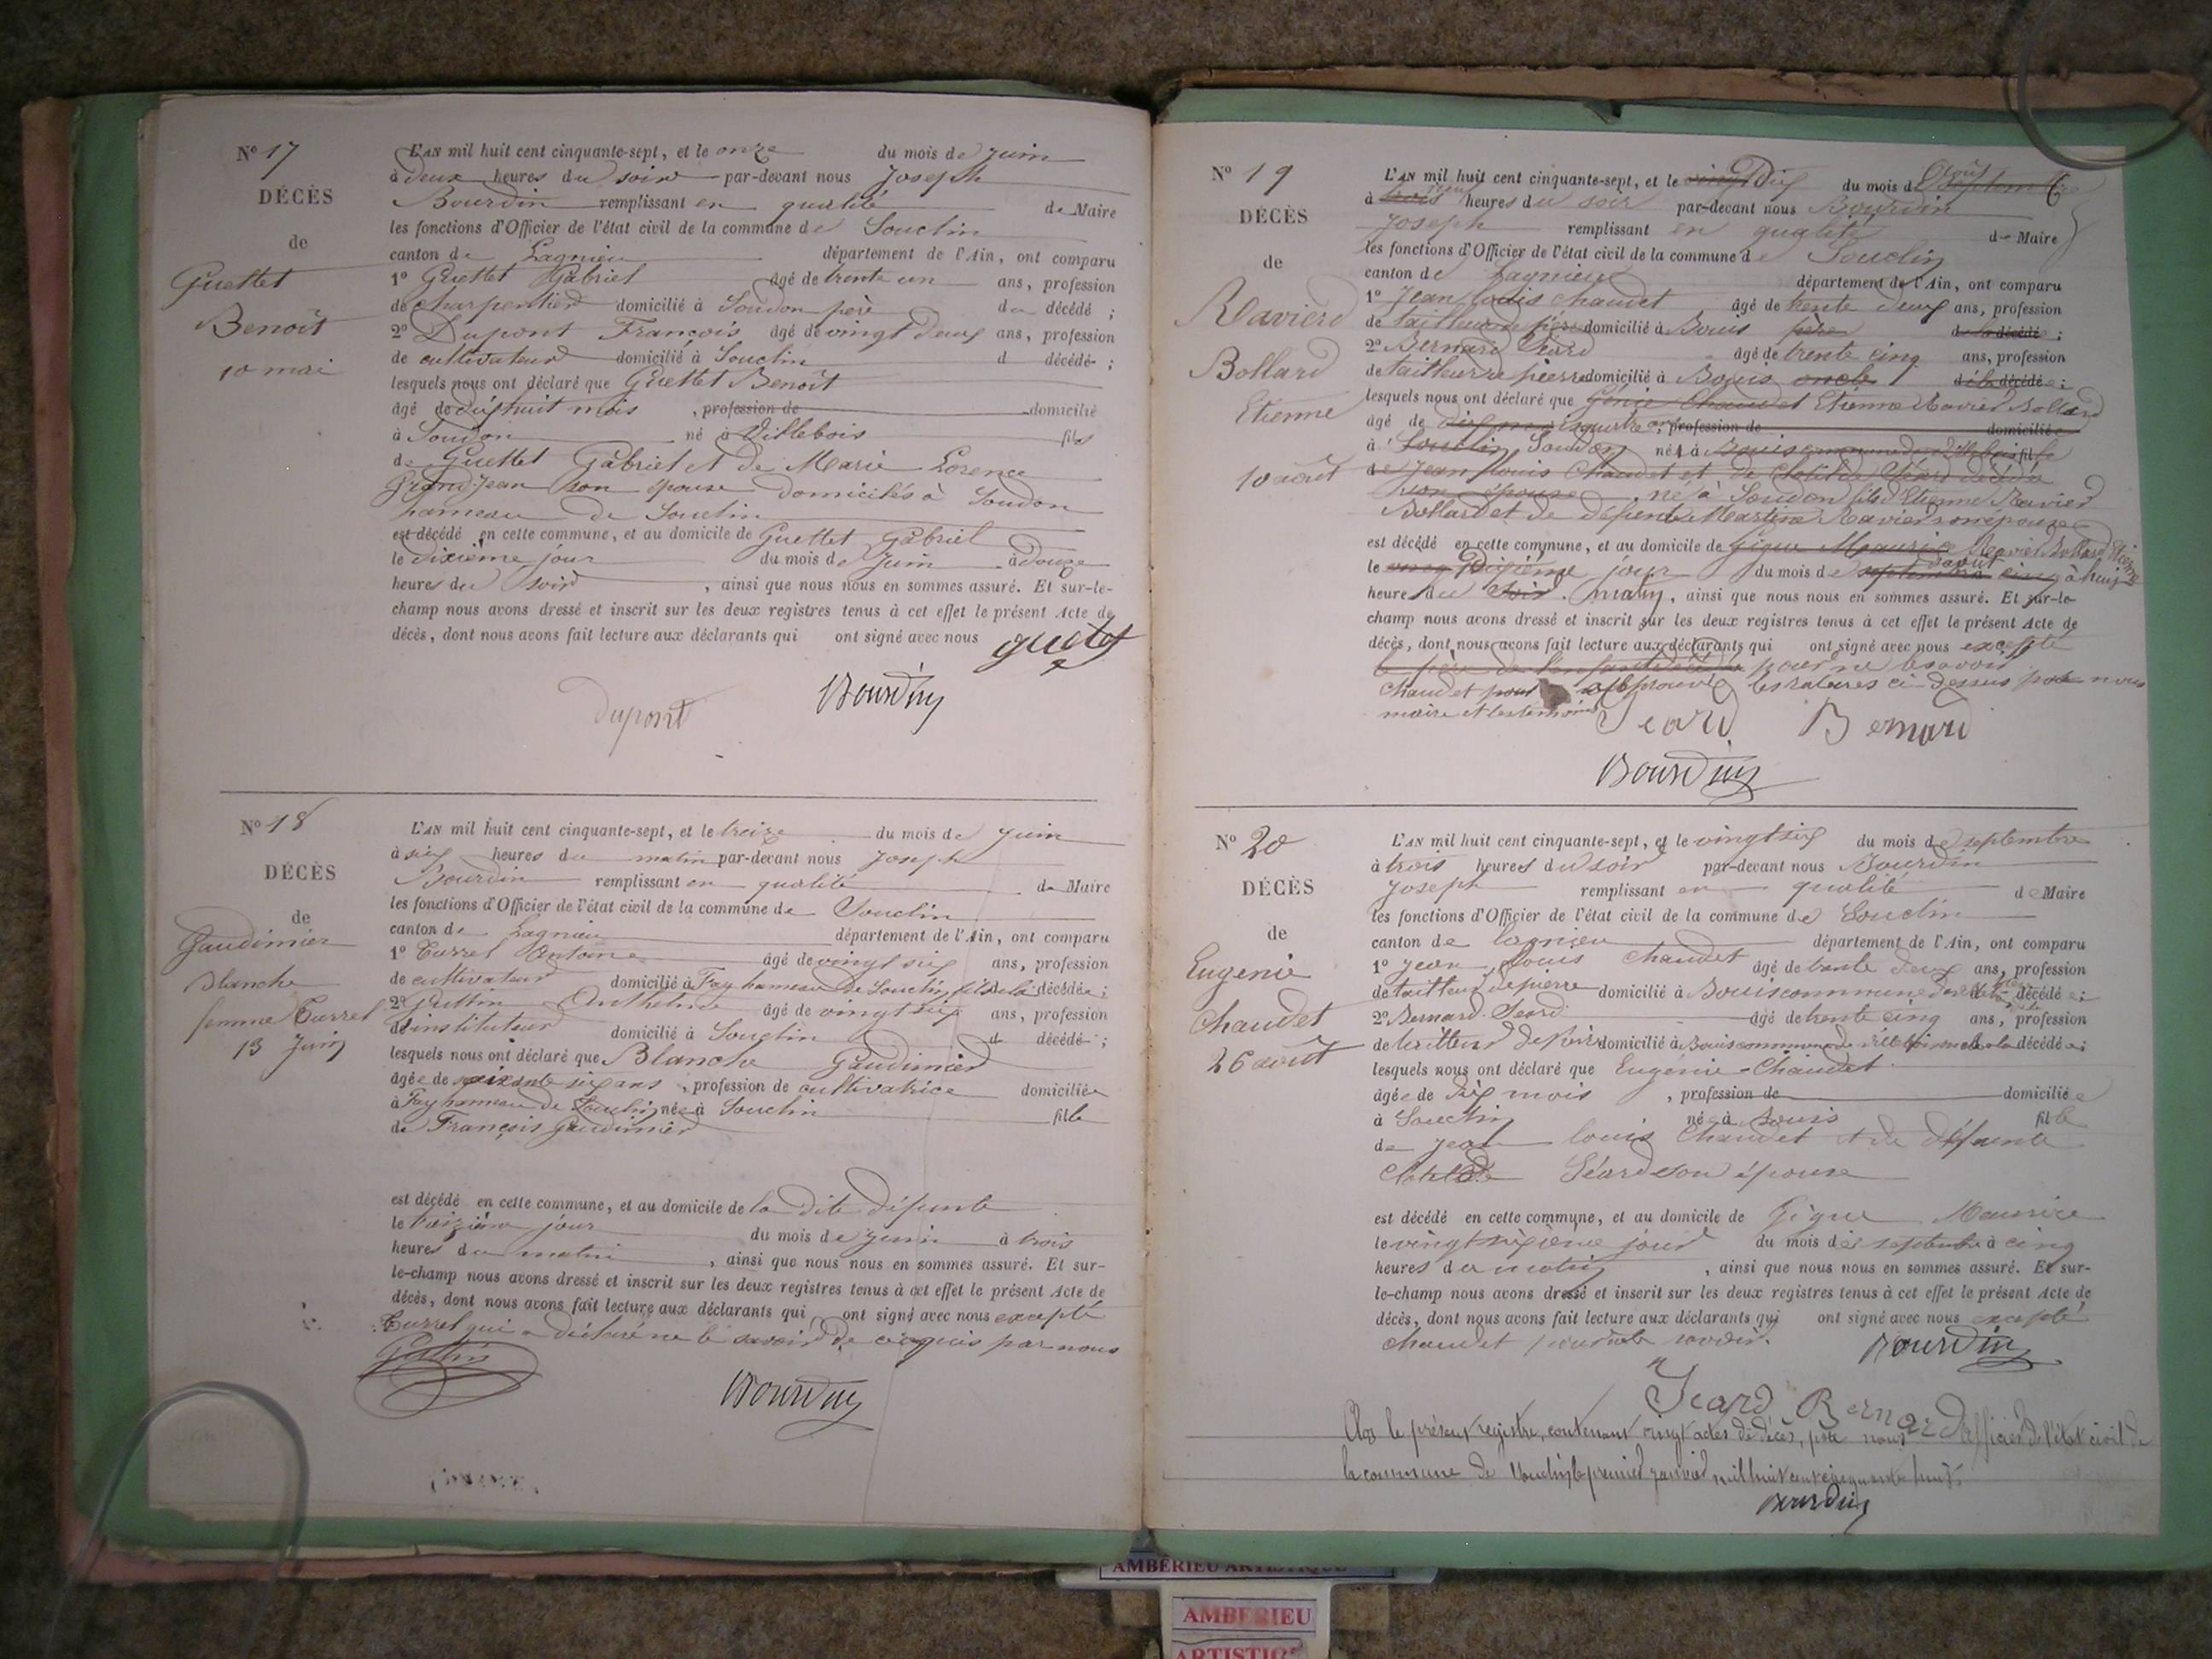 N° 17
DÉCÈS
de
Guettet
Benoît
10 mai
L'AN mil huit cent cinquante-sept, et le onze du mois de juin
à deux heures du soir par-devant nous Joseph
Bourdin remplissant en qualité de Maire
les fonctions d'Officier de l'état civil de la commune de Souclin
canton de Lagnieu département de l'Ain, ont comparu
1° Guettet Gabriel âgé de trente un ans, profession
de charpentier domicilié à Soudon père du décédé ;
2° Dupont François âgé de vingt deux ans, profession
de cultivateur domicilié à Souclin d décédé ;
lesquels nous ont déclaré que Guettet Benoît
âgé de dix huit mois , profession de domicilié
à Soudon né à Villebois fils
de Guettet Gabriel et de Marie Lorence
Grand Jean son épouse domiciliés à Soudon
hameau de Souclin
est décédé en cette commune, et au domicile de Guettet Gabriel
le dixième jour du mois de juin à douze
heures du soir , ainsi que nous nous en sommes assuré. Et sur-le-
champ nous avons dressé et inscrit sur les deux registres tenus à cet effet le présent Acte de
décès, dont nous avons fait lecture aux déclarants qui ont signé avec nous
guetet
dupont Bourdin
N° 18
DÉCÈS
de
Gaudimier
Blanche
femme Turrel
13 Juin
L'AN mil huit cent cinquante-sept, et le treize du mois de juin
à six heures du matin par-devant nous Joseph
Bourdin remplissant en qualité de Maire
les fonctions d'Officier de l'état civil de la commune de Souclin
canton de Lagnieu département de l'Ain, ont comparu
1° Turrel Antoine âgé de vingt six ans, profession
de cultivateur domicilié à Fay hameau de Souclin fils de la décédée ;
2° Guttin Anthelme âgé de vingt six ans, profession
d'instituteur domicilié à Souclin d décédé ;
lesquels nous ont déclaré que Blanche Gaudimier
âgée de soixante six ans , profession de cultivatrice domiciliée
à Fay hameau de Souclin née à Souclin fille
de François Gaudimier
est décédé en cette commune, et au domicile de la dite défunte
le treizième jour du mois de juin à trois
heures du matin , ainsi que nous nous en sommes assuré. Et sur-
le-champ nous avons dressé et inscrit sur les deux registres tenus à cet effet le présent Acte de
décès, dont nous avons fait lecture aux déclarants qui ont signé avec nous excepté
Turrel qui a déclaré ne le savoir de ce requis par nous
Guttin
Bourdin
N° 19
DÉCÈS
de
Ravier
Bollard
Etienne
10 août
L'AN mil huit cent cinquante-sept, et le vingt Dix du mois d août septembre
à trois heures du soir par-devant nous Bourdin
Joseph remplissant en qualité de Maire
les fonctions d'Officier de l'état civil de la commune de Souclin
canton de Lagnieu département de l'Ain, ont comparu
1° Jean Louis Chaudet âgé de trente deux ans, profession
de tailleur de pierre domicilié à Bouis père de la décédé ;
2° Bernard Séard âgé de trente cinq ans, profession
de tailleur de pierre domicilié à Bouis oncle de la décédée ;
lesquels nous ont déclaré que Génie Chaudet Etienne Ravier Bollard
âgé de dix mois quatre ans, profession de domiciliée
à Souclin Soudon né à Bouis commune de Villebois fille
de Jean Louis Chaudet et de Clotilde Séard décédée
son épouse, né à Soudon fils d'Etienne Ravier
Bollard et de défunte Martine Ravier son épouse
est décédé en cette commune, et au domicile de Gigue Maurice Ravier Bollard Etienne
le vingt Dixième jour du mois de septembre d'août cinq à huit
heures du soir matin, ainsi que nous nous en sommes assuré. Et sur-le-
champ nous avons dressé et inscrit sur les deux registres tenus à cet effet le présent Acte de
décès, dont nous avons fait lecture aux déclarants qui ont signé avec nous excepté
le père de l'enfant décédé pour ne le savoir
Chaudet pour approuvé les ratures ci-dessus par nous
maire et les témoins
Seard Bernard
Bourdin
N° 20
DÉCÈS
de
Eugenie
Chaudet
26 août
L'AN mil huit cent cinquante-sept, et le vingt six du mois de septembre
à trois heures du soir par-devant nous Bourdin
Joseph remplissant en qualité de Maire
les fonctions d'Officier de l'état civil de la commune de Souclin
canton de lagnieu département de l'Ain, ont comparu
1° Jean Louis Chaudet âgé de trente deux ans, profession
de tailleur de pierre domicilié à Bouis commune de décédé ;
2° Bernard Seard âgé de trente cinq ans, profession
de tailleur de pierre domicilié à Bouis commune de Villebois oncle de la décédée ;
lesquels nous ont déclaré que Eugénie Chaudet
âgée de dix mois , profession de domiciliée
à Souclin née à Bouis fille
de Jean louis Chaudet et de défunte
Clotilde Séard son épouse
est décédé en cette commune, et au domicile de Gigue Maurice
le vingt sixième jour du mois de septembre à cinq
heures du matin , ainsi que nous nous en sommes assuré. Et sur-
le-champ nous avons dressé et inscrit sur les deux registres tenus à cet effet le présent Acte de
décès, dont nous avons fait lecture aux déclarants qui ont signé avec nous excepté
Chaudet pour ne le savoir. Bourdin
Seard Bernard
Clos le présent registre, contenant vingt actes de décès, par nous officier de l'état civil de
la commune de Souclin, le premier janvier mil huit cent cinquante huit.
Bourdin
AMBÉRIEU ARTISTIQUE
AMBERIEU
ARTISTIQUE